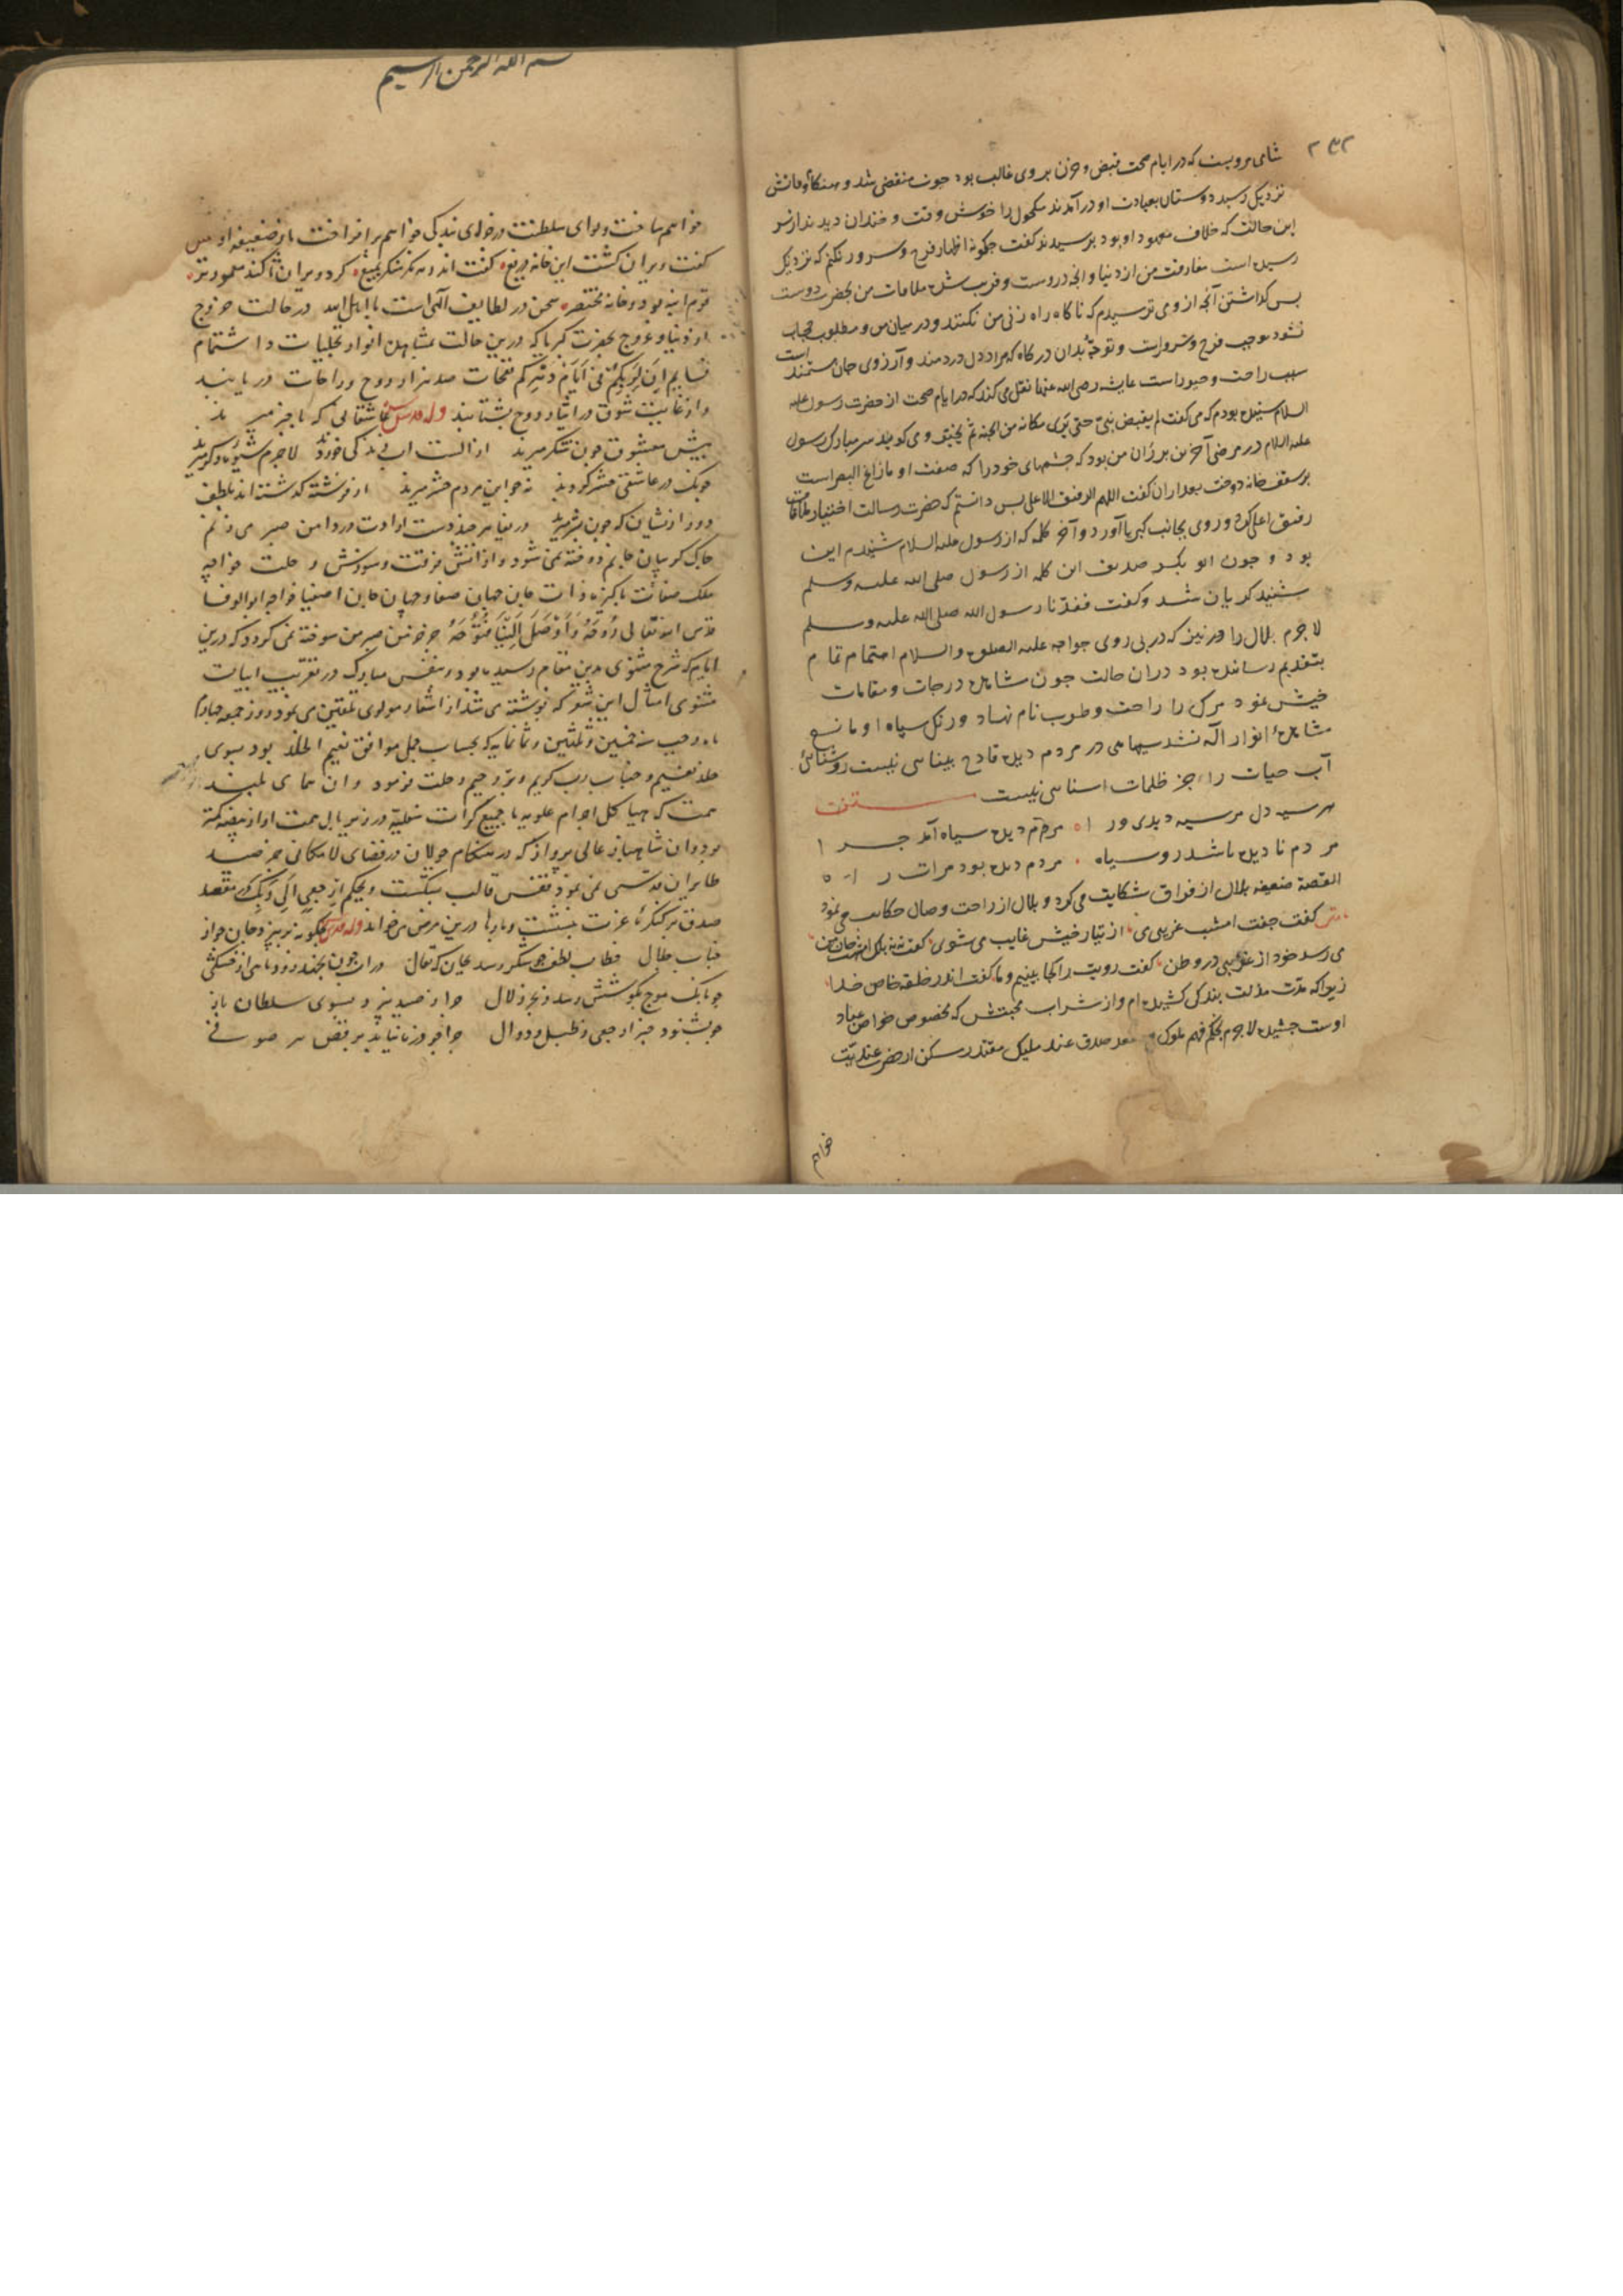 ۲۳۲
شامی مرویست که در ایام صحت قبض و حزن بر وی غالب بود چون منقضی شد و هنکام وفاتش
نزدیک رسید دوستان بعیادت او درآمدند مکحول را خوش وقت و خندان دیدند از سر
این حالت که خلاف معهود او بود پرسیدند گفت چگونه اظهار فرح و سرور نکنم که نزدیک
رسیده است مفارقت من از دنیا و آنچه دروست و قریب شده ملاقات من بحضرت دوست
پس گذاشتن آنچه از وی ترسیدم که ناگاه راه زنی من نکنند و در میان من و مطلوب حجاب
نشود موجب فرح و سرورست و توجه بدان درگاه که مراد دل دردمند و آرزوی جان مستمند است
سبب راحت و حبور است عایشه رضی الله عنها نقل می کند که در ایام صحت از حضرت رسول علیه
السلام شنیده بودم که می گفت لم یقبض نبی حتی یری مکانه من الجنة ثم یخیر و می گوید سر مبارک رسول
علیه السلام در مرض آخرین بر ران من بود که چشمهای خود را که صفت او ما زاغ البصر است
بر سقف خانه دوخت بعد از آن گفت اللهم الرفیق الاعلی پس دانستم که حضرت رسالت اختیار ملاقات
رفیق اعلی کرد و روی بجانب کبریا آورد و آخر کلمه که از رسول علیه السلام شنیدم این
بود و چون ابو بکر صدیق این کلمه از رسول صلی الله علیه وسلم
بشنید گریان شد و گفت فقدنا رسول الله صلی الله علیه وسلم
لاجرم بلال را نیز که در بی روی خواجه علیه الصلوة والسلام اهتمام تمام
بتقدیم رسانیده بود دران حالت چون مشاهده درجات و مقامات
خویش نمود مرگ را راحت و طرب نام نهاد و رنگ سیاه او مانع
مشاهدۀ انوار اله نشد سیاهی در مردم دیده قادح بینایی نیست روشنائی
آب حیات را جز ظلمات اسبابی نیست
هر سیه دل مر سیه دیدی ورا ○ مردم دیده سیاه آمد چرا
مردم نادیده باشد روسیاه ○ مردم دیده بود مرآت راه
القصه ضعیفه بلال از فراق شکایت می کرد و بلال از راحت وصال حکایت می نمود
متن گفت جفت امشب غریبی می از تبار خویش غایب می شوی گفت نه نه بلک امشب جان من
می رسد خود از غریبی در وطن گفت رویت را کجا بینیم و ما گفت اندر خلقه خاص خدا
زیرا که مدت مذلت بندگی کشیده ام و از شراب محبتش که مخصوص خواص عباد
اوست چشیده لاجرم بحکم فهم ملوک مقعد صدق عند ملیک مقتدر مسکن از حضرت عندیت
خواهم
بسم الله الرحمن الرحیم
خواهم ساخت و لوای سلطنت در خدای بندگی خواهم برافراخت باز ضعیفه او پس
گفت ویران گشت این خانه دریغ گفت اندر مه نگر منگر بمیغ کرد ویران تا کند معمورتر
قوم انبه بود و خانه مختصر سخن در لطایف الهی است با اهل الله در حالت خروج
از دنیا و عروج بحضرت کبریا که درین حالت بمشاهده انوار تجلیات و استشمام
نسایم ان لربکم فی ایام دهرکم نفحات صد هزار روح و راحات دریابند
و از غایت شوق در ایثار روح بشتابند وله قدس سره عاشقانی که باخبر میرند
پیش معشوق چون شکر میرند از الست آب زندگی خوردند لاجرم شیوۀ دگر میرند
چونک در عاشقی حشر کردند نه چو این مردم حشر میرند از فرشته گذشته اند بلطف
دور از ایشان که چون بشر میرند
چاک گریبان جانم دوخته نمی شود و از آتش فرقت و سوزش رحلت خواجه
ملک صفات پاکیزه ذات جان جهان صفا و جهان جان اصفیا خواجه ابو الوفا
قدس الله تعالی روحه و اوصل الینا فتوحه جز خرمن صبر من سوخته نمی گردد که درین
ایام که شرح مثنوی بدین مقام رسیده بود و بنفس مبارک در تقریب ابیات
مثنوی امثال این شعر که نوشته می شد از اشعار مولوی تلقین می نمود روز جمعه چهارم
ماه رجب سنه خمس و ثلثین و ثمانمایه که بحساب جمل موافق نعیم الخلد بود بسوی
خلد نعیم و جناب رب کریم و بر رحیم رحلت فرمود و آن همای بلند
همت که هیاکل اجرام علویه با جمیع کرات سفلیه در زیر بال همت او از بیضه کمتر
بود و آن شاهباز عالی پرواز که در هنگام جولان در فضای لامکانی جز صید
طایران قدسی نمی نمود قفس قالب بشکست و بحکم ارجعی الی ربک در مقعد
صدق بر کنگرۀ عزت بنشست و بارها درین مرض می خواند وله قدس سره چگونه بر نپرد جان چو از
جناب جلال خطاب لطف چو شکر رسد بجان که تعال در آب چون نجهد زود ماهی از خشکی
چو بانگ موج بگوشش رسد ز بحر زلال چرا ز صید نپرد بسوی سلطان باز
چو بشنود خبر ارجعی ز طبل و دوال چرا چو ذره نیاید برقص هر صوفی